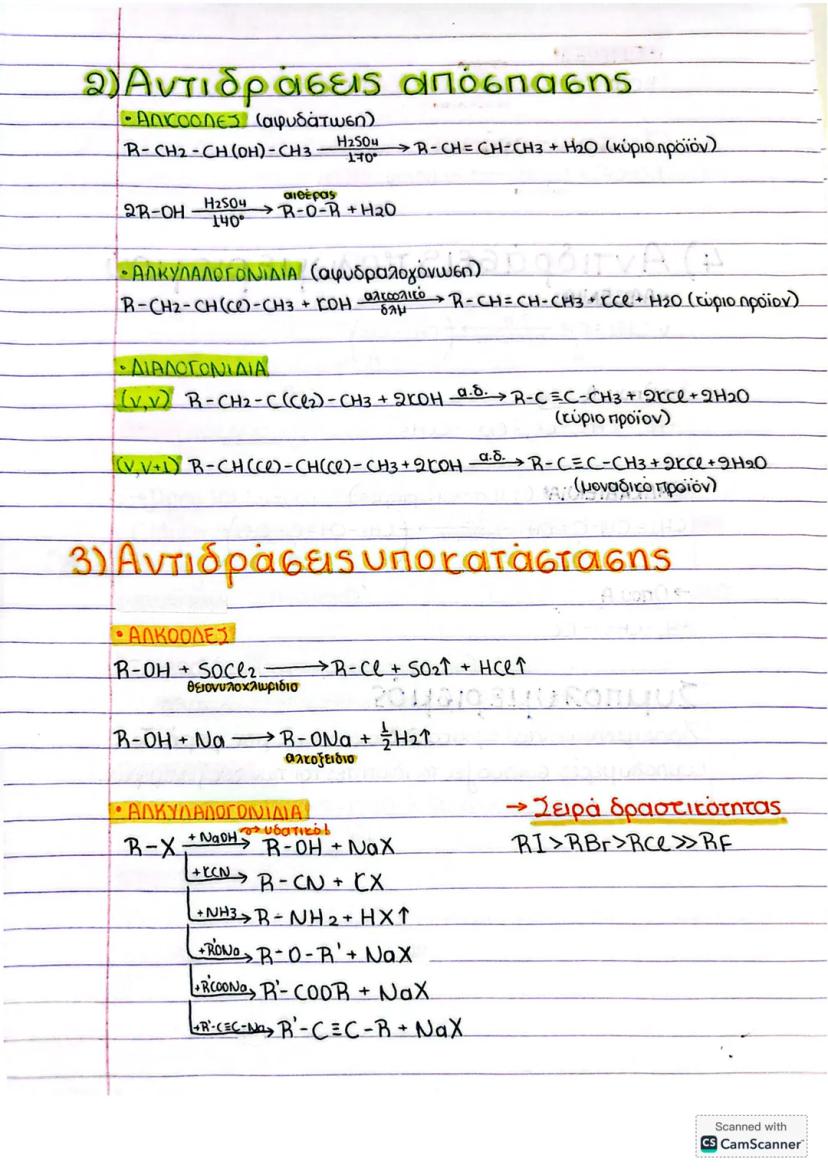 2) Αντιδράσεις απόσπασης
• ΑΛΚΟΟΛΕΣ (αφυδάτωση)
R-CH2-CH(OH)-CH3 H2SO4 170° → R-CH=CH-CH3 + H2O (κύριο προϊόν)
αιθέρας
2R-OH H2SO4 140° → R-O-R + H2O
• ΑΛΚΥΛΑΛΟΓΟΝΙΔΙΑ (αφυδραλογόνωση)
R-CH2-CH(Cl)-CH3 + KOH αλκοολικό δλμ → R-CH=CH-CH3 + KCl + H2O (κύριο προϊόν)
• ΔΙΑΛΟΓΟΝΙΔΙΑ
(ν,ν) R-CH2-C(Cl2)-CH3 + 2KOH α.δ. → R-C≡C-CH3 + 2KCl + 2H2O
(κύριο προϊόν)
(ν,ν+1) R-CH(Cl)-CH(Cl)-CH3 + 2KOH α.δ. → R-C≡C-CH3 + 2KCl + 2H2O
(μοναδικό προϊόν)
3) Αντιδράσεις υποκατάστασης
• ΑΛΚΟΟΛΕΣ
R-OH + SOCl2 → R-Cl + SO2↑ + HCl↑
θειονυλοχλωρίδιο
R-OH + Na → R-ONa + 1/2 H2↑
αλκοξείδιο
• ΑΛΚΥΛΑΛΟΓΟΝΙΔΙΑ
→ Σειρά δραστικότητας
→ υδατικό!
R-X +NaOH → R-OH + NaX
RI > RBr > RCl >> RF
+KCN → R-CN + KX
+NH3 → R-NH2 + HX↑
+R'ONa → R-O-R' + NaX
+R'COONa → R'-COOR + NaX
+R'-C≡C-Na → R'-C≡C-R + NaX
Scanned with
CS CamScanner